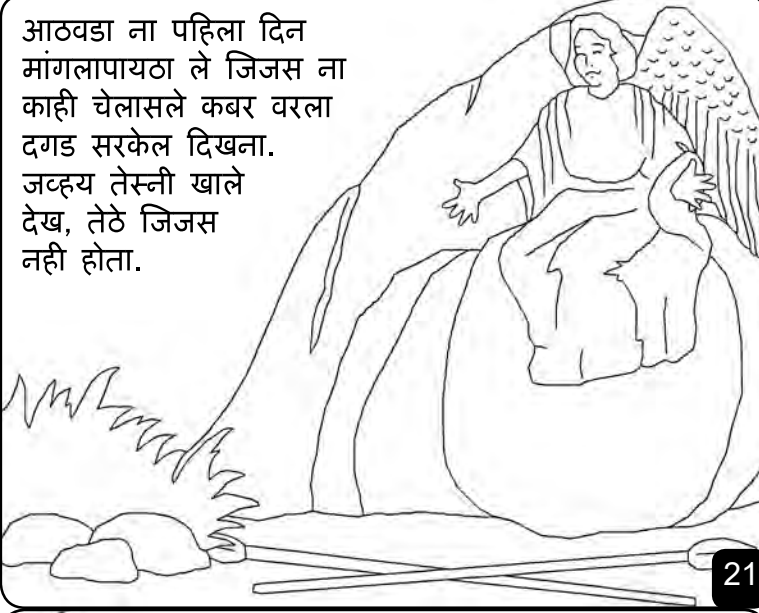 आठवडा ना पहिला दिन
मांगलापायठा ले जिजस ना
काही चेलासले कबर वरला
दगड सरकेल दिखना.
जव्हय तेस्नी खाले
देख, तेठे जिजस
नही होता.
21